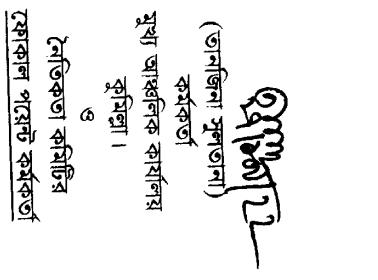 (তানজিনা সুলতানা)
কর্মকর্তা
মুখ্য আঞ্চলিক কার্যালয়
কুমিল্লা।
ও
নৈতিকতা কমিটির
ফোকাল পয়েন্ট কর্মকর্তা